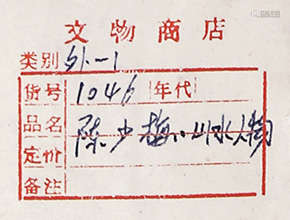 文物商店
类别 51.-1
货号 1046 年代
品名 陈少梅山水人物
定价
备注